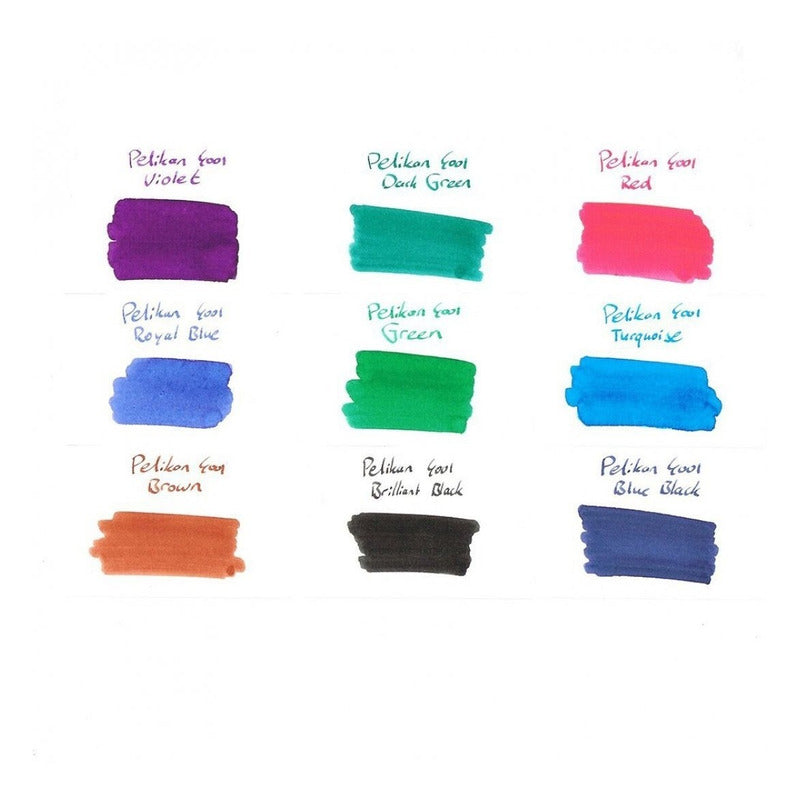 Pelikan 4001
Violet
Pelikan 4001
Dark Green
Pelikan 4001
Red
Pelikan 4001
Royal Blue
Pelikan 4001
Green
Pelikan 4001
Turquoise
Pelikan 4001
Brown
Pelikan 4001
Brilliant Black
Pelikan 4001
Blue Black